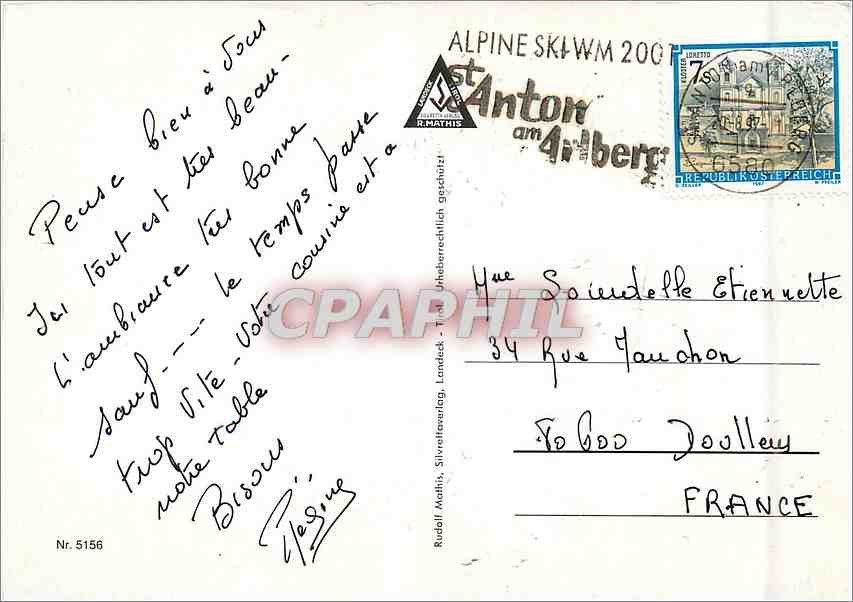 Pense bien à vous
Ici tout est très beau-
L'ambiance très bonne
sauf ---- le temps passe
trop vite - Votre cousine est a
notre table
Bisous
Régine
Nr. 5156
ALPINE SKI-WM 2001
st. Anton
am Arlberg
LANDECK TIROL
SILVRETTA-VERLAG
R. MATHIS
KLOSTER LORETTO
7
6580
REPUBLIK ÖSTERREICH
G. ZEILLER 1987 W. PFEILER
Rudolf Mathis, Silvrettaverlag, Landeck - Tirol. Urheberrechtlich geschützt!
CPAPHIL
Mme Etiennette
34 Rue
80600 Doullens
FRANCE